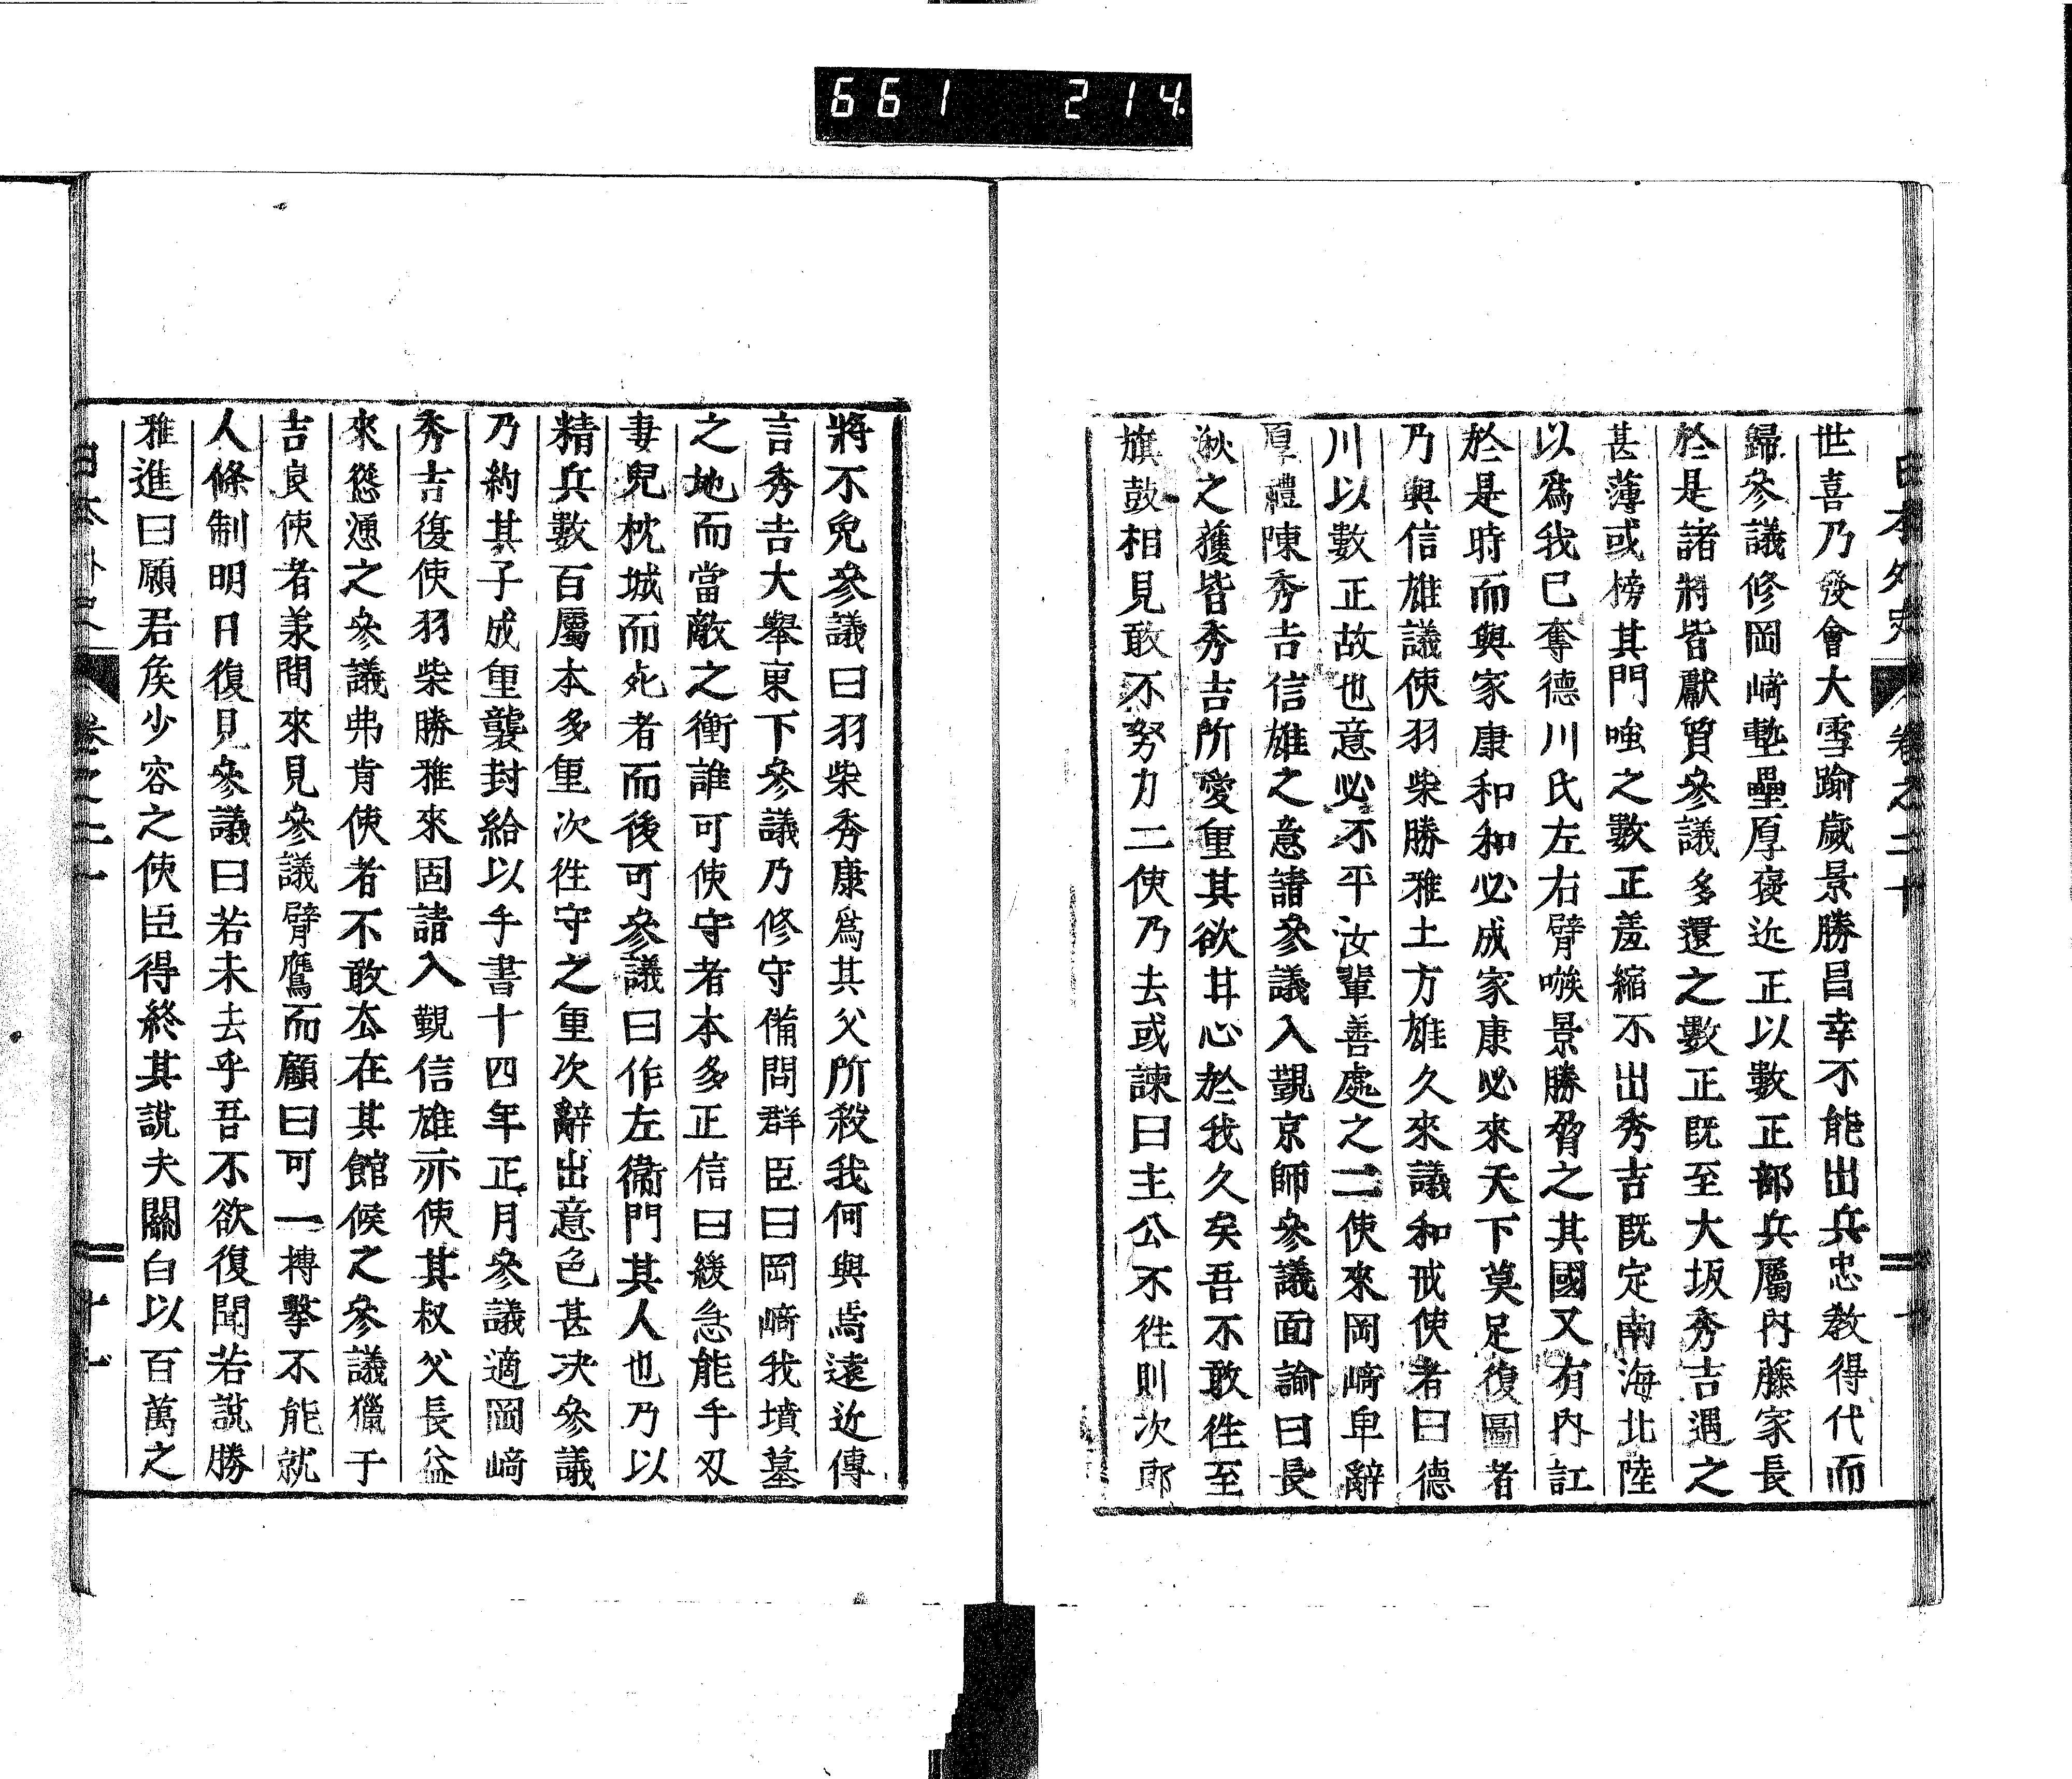 661 214
日本外史 卷之二十 十
世喜乃發會大雪踰歲景勝昌幸不能出兵忠教得代而
歸參議修岡崎塹壘厚褒近正以數正部兵屬內藤家長
於是諸將皆獻質參議多還之數正既至大坂秀吉遇之
甚薄或榜其門嗤之數正羞縮不出秀吉既定南海北陸
以爲我已奪德川氏左右臂嗾景勝脅之其國又有內訌
於是時而與家康和和必成家康必來天下莫足復圖者
乃與信雄議使羽柴勝雅土方雄久來議和戒使者曰德
川以數正故也意必不平汝輩善處之二使來岡崎卑辭
厚禮陳秀吉信雄之意諸參議入覲京師參議面諭曰長
湫之獲皆秀吉所愛重其欲甘心於我久矣吾不敢往至
旗鼓相見敢不努力二使乃去或諫曰主公不往則次郎
將不免參議曰羽柴秀康爲其父所殺我何與焉遠近傳
言秀吉大舉東下參議乃修守備問群臣曰岡崎我墳墓
之地而當敵之衝誰可使守者本多正信曰緩急能手刃
妻兒枕城而死者而後可參議曰作左衞門其人也乃以
精兵數百屬本多重次往守之重次辭出意色甚決參議
乃約其子成重襲封給以手書十四年正月參議適岡崎
秀吉復使羽柴勝雅來固諸入覲信雄亦使其叔父長益
來慫慂之參議弗肯使者不敢厺在其館候之參議獵于
吉良使者兼間來見參議臂鷹而顧曰可一搏擊不能就
人條制明日復見參議曰若未去乎吾不欲復聞若說勝
雅進曰願君矦少容之使臣得終其說夫關白以百萬之
日本外史 卷之二十 十一